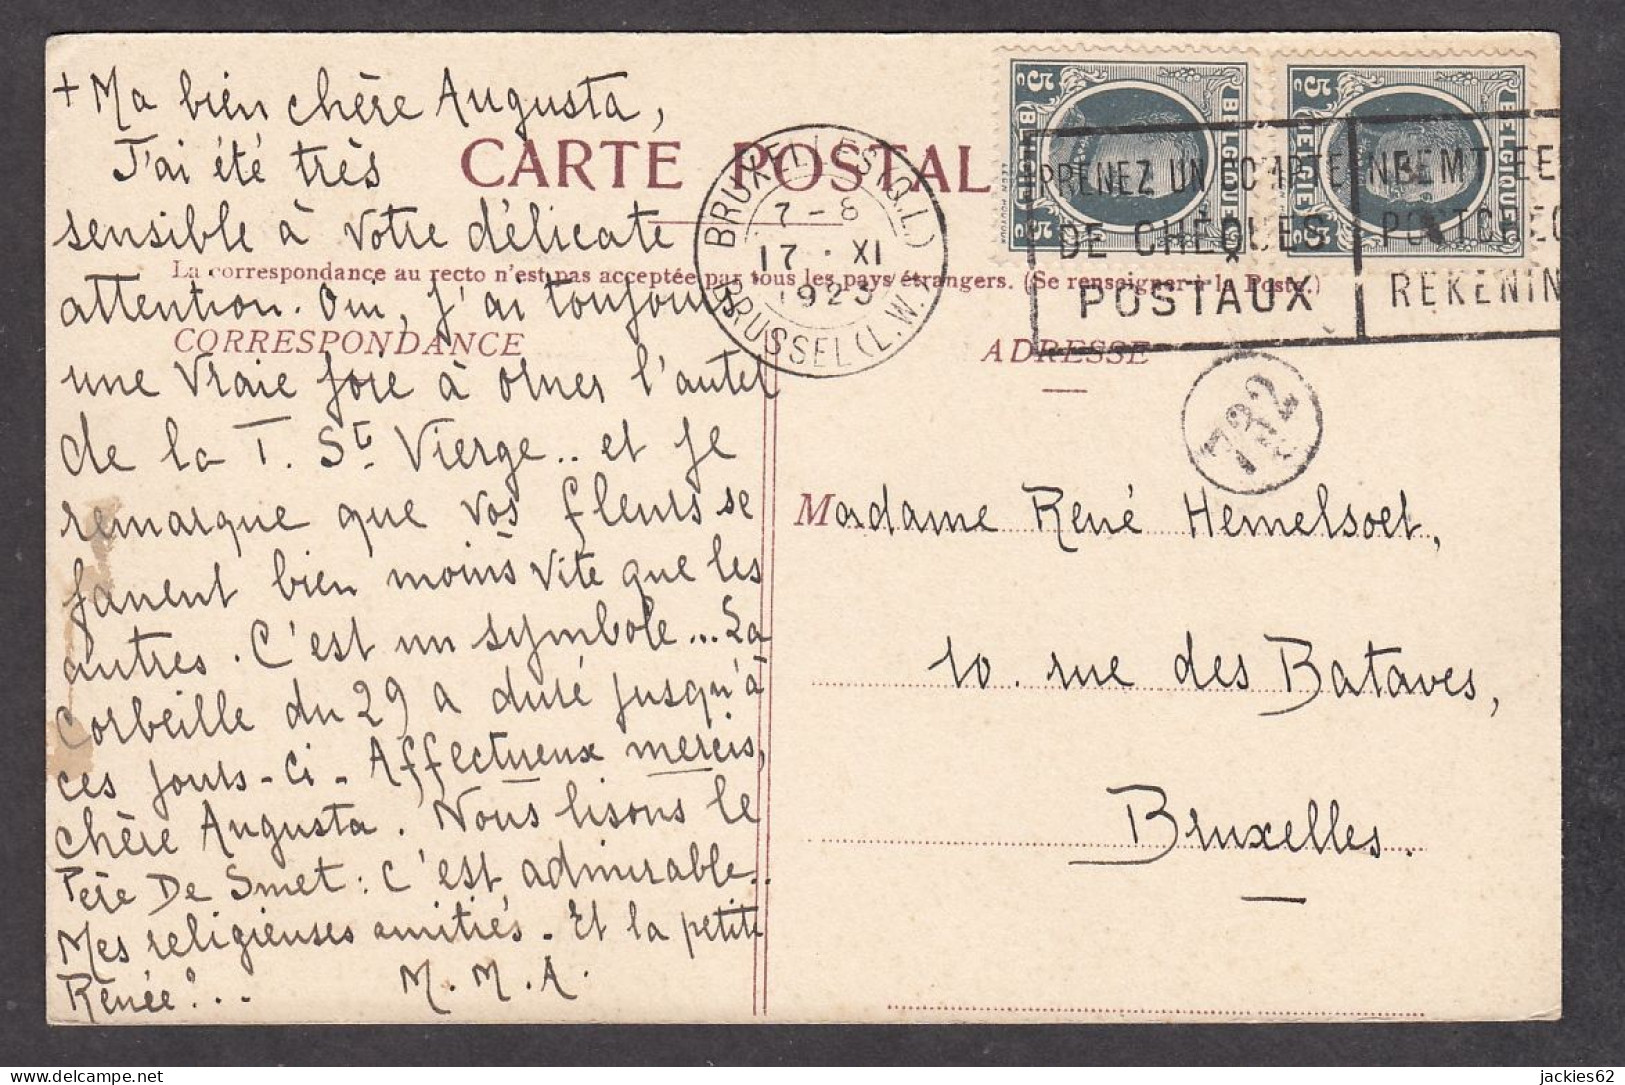 + Ma bien chère Augusta,
J'ai été très
sensible à votre délicate
attention. Oui, j'ai toujours
une vraie joie à orner l'autel
de la T. Ste. Vierge.. et je
remarque que vos fleurs se
fanent bien moins vite que les
autres. C'est un symbole... La
corbeille du 29 a duré jusqu'à
ces jours-ci - Affectueux mercis,
chère Augusta. Nous lisons le
Père De Smet : c'est admirable..
Mes religieuses amitiés. Et la petite
Renée?...
M. M. A.
CARTE POSTAL
La correspondance au recto n'est pas acceptée par tous les pays étrangers. (Se renseigner à la Poste.)
CORRESPONDANCE
ADRESSE
BRUXELLES (Q.L.)
7-8
17 · XI
1923
BRUSSEL (L.W.)
5c 5c
BELGIQUE
BELGIË
5c 5c
BELGIQUE
BELGIË
PRENEZ UN COMPTE
DE CHÈQUES
POSTAUX
NEEMT EE
POSTCHEC
REKENIN
732
Madame René Hemelsoet,
10. rue des Bataves,
Bruxelles.
delcampe.net
jackies62